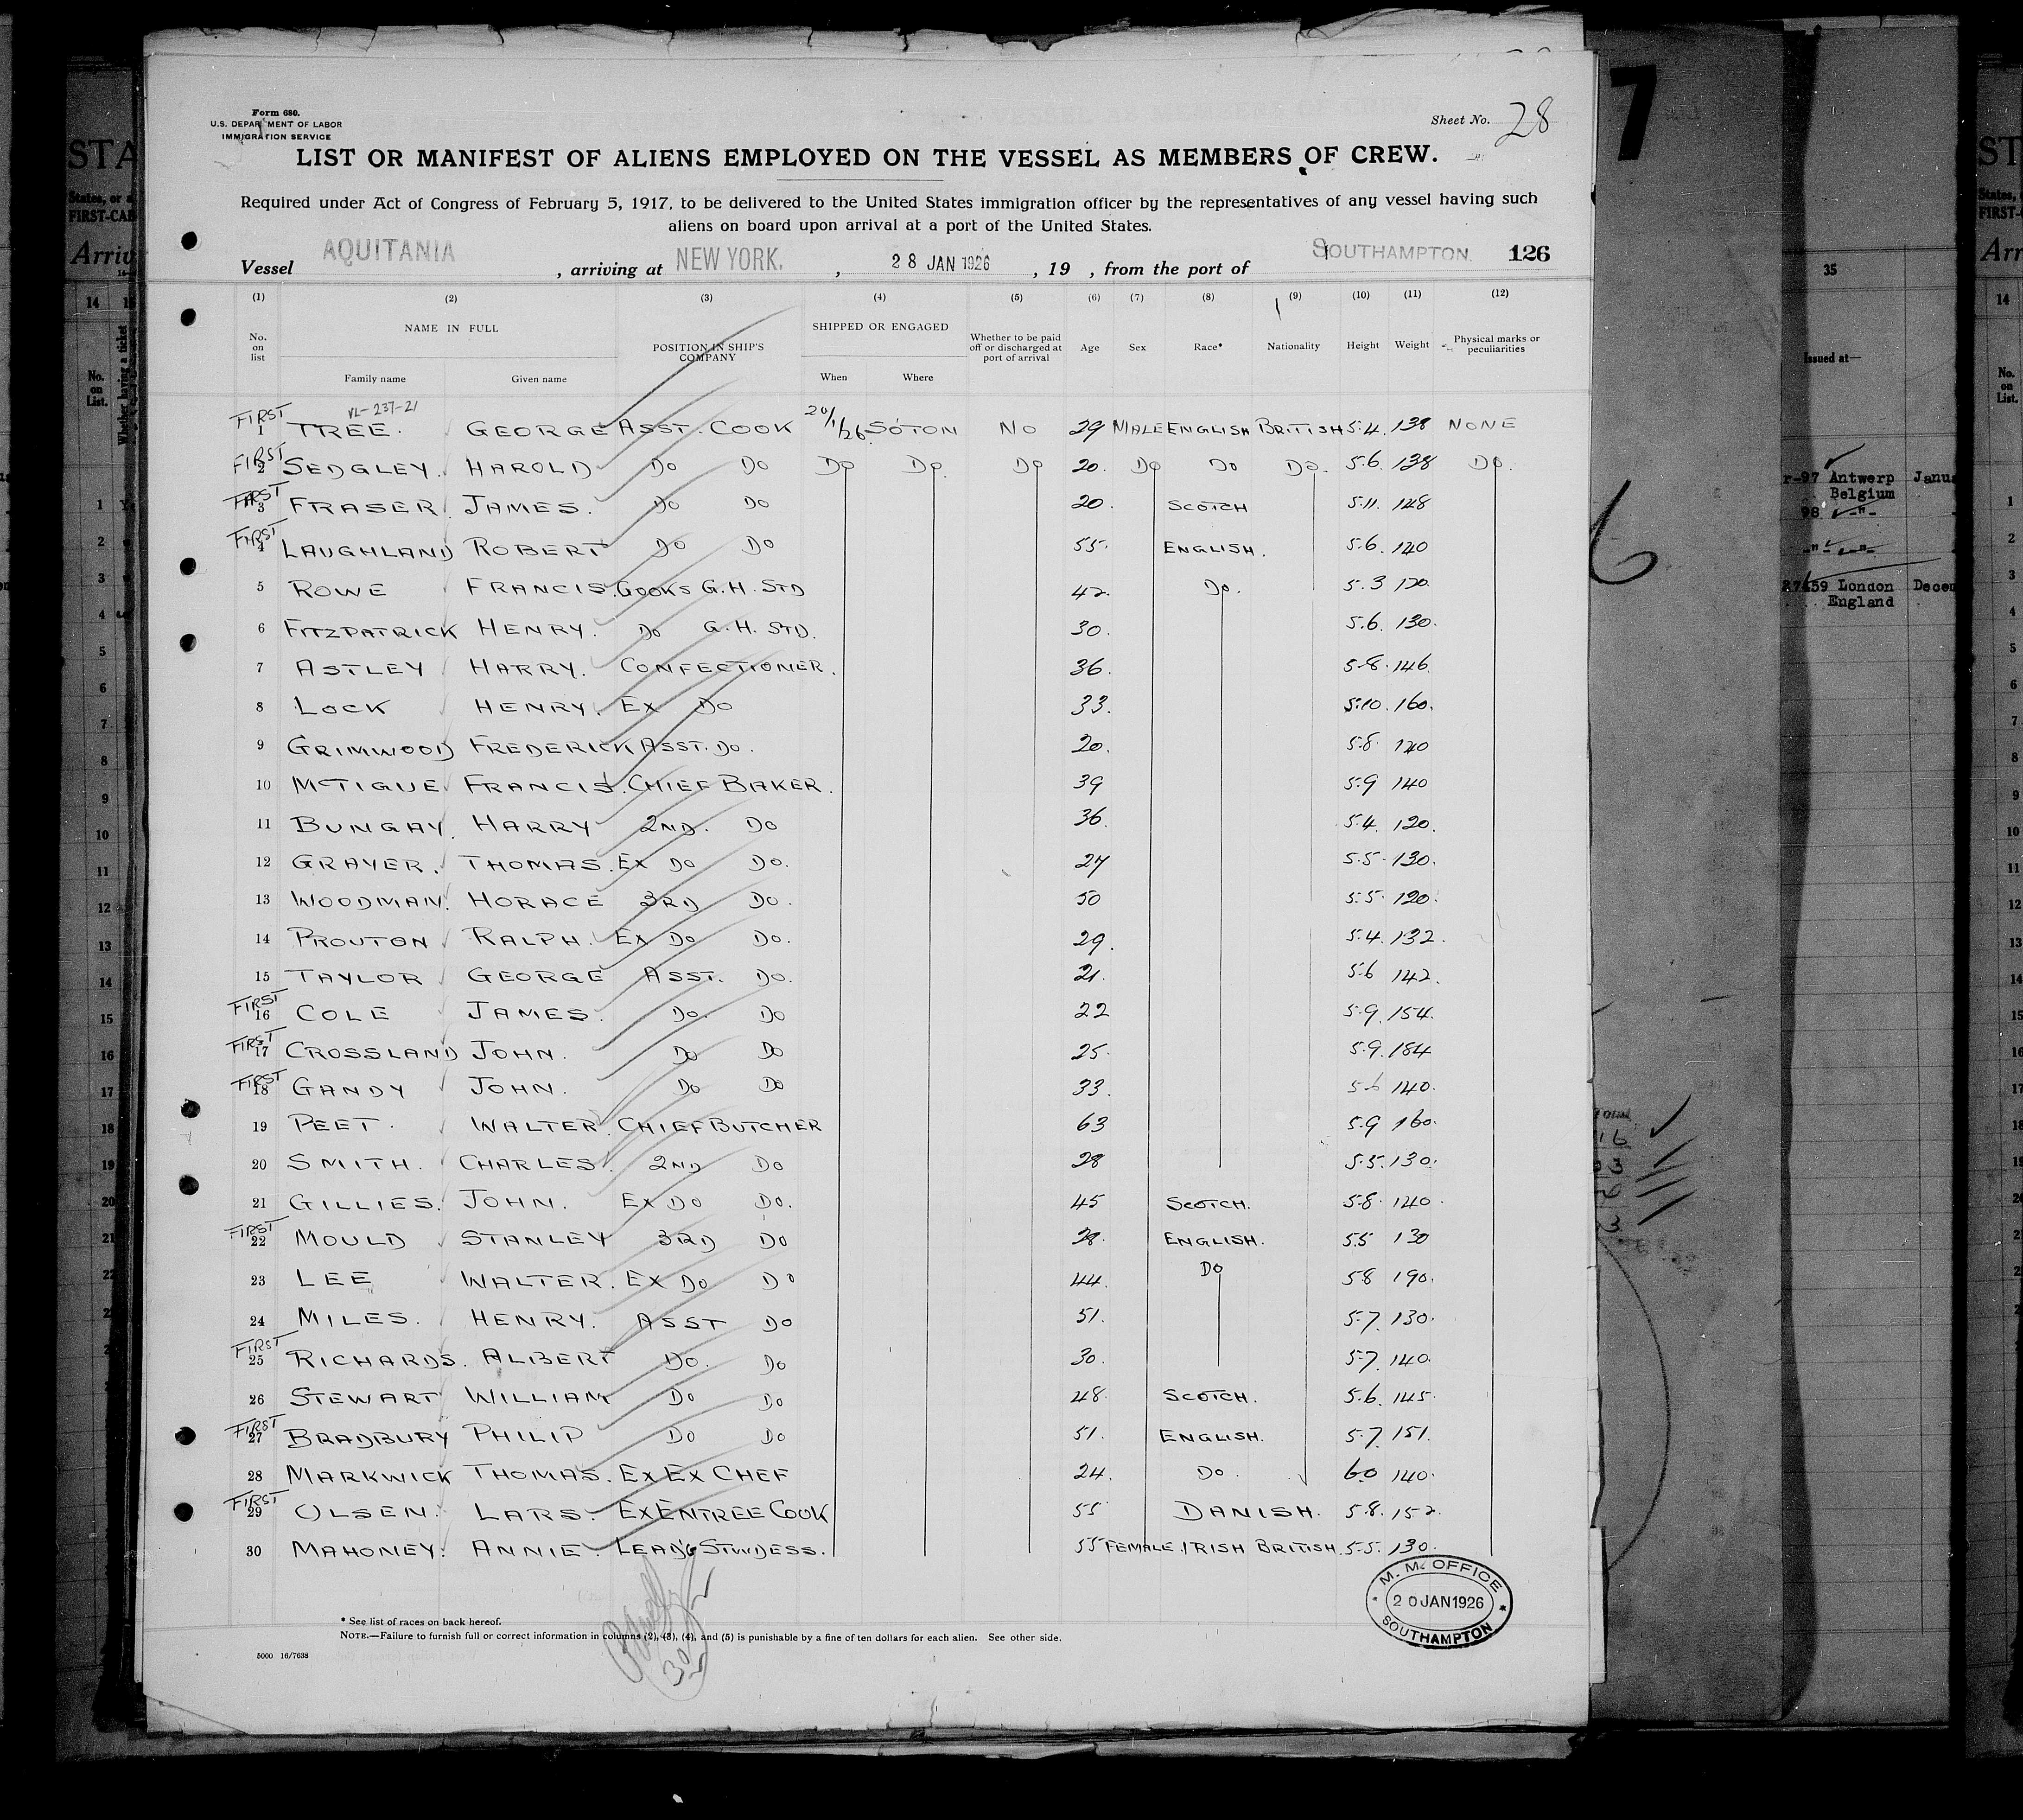 Form 680.
U.S. DEPARTMENT OF LABOR
IMMIGRATION SERVICE
Sheet No. 28
LIST OR MANIFEST OF ALIENS EMPLOYED ON THE VESSEL AS MEMBERS OF CREW.
Required under Act of Congress of February 5, 1917, to be delivered to the United States immigration officer by the representatives of any vessel having such
aliens on board upon arrival at a port of the United States.
Vessel AQUITANIA, arriving at NEW YORK, 28 JAN 1926, 19 , from the port of SOUTHAMPTON. 126
(1) (2) (3) (4) (5) (6) (7) (8) (9) (10) (11) (12)
No. on list NAME IN FULL Family name Given name POSITION IN SHIP'S COMPANY SHIPPED OR ENGAGED When Where Whether to be paid off or discharged at port of arrival Age Sex Race* Nationality Height Weight Physical marks or peculiarities
VL-237-21
FIRST 1 TREE. GEORGE ASST. COOK 20/1/26 SOTON NO 29 MALE ENGLISH BRITISH 5.4. 138 NONE
FIRST 2 SEDGLEY. HAROLD DO DO DO DO. DO 20. DO DO DO. 5.6. 138 DO.
FIRST 3 FRASER. JAMES. DO DO 20. SCOTCH 5.11. 148
FIRST 4 LAUGHLAND ROBERT DO DO 55. ENGLISH. 5.6. 140
5 ROWE FRANCIS. COOKS G.H. STD 42. DO. 5.3 120.
6 FITZPATRICK HENRY. DO G.H. STD. 30. 5.6. 130.
7 ASTLEY HARRY. CONFECTIONER. 36. 5.8. 146.
8 LOCK HENRY. EX DO 33. 5.10. 160.
9 GRIMWOOD FREDERICK ASST. DO. 20. 5.8. 140
10 MCTIGUE FRANCIS. CHIEF BAKER. 39 5.9 140
11 BUNGAY. HARRY 2ND. DO 36. 5.4. 120.
12 GRAYER. THOMAS. EX DO DO. 27 5.5. 130.
13 WOODMAN. HORACE 3RD DO. 50 5.5. 120.
14 PROUTON RALPH. EX DO DO. 29. 5.4. 132.
15 TAYLOR GEORGE ASST. DO. 21. 5.6 142.
FIRST 16 COLE JAMES. DO. DO 22 5.9. 154.
FIRST 17 CROSSLAND JOHN. DO DO 25. 5.9. 184
FIRST 18 GANDY JOHN. DO DO 33. 5.6 140.
19 PEET. WALTER. CHIEF BUTCHER 63 5.9 160.
20 SMITH. CHARLES. 2ND DO 28 5.5. 130.
21 GILLIES. JOHN. EX DO DO. 45 SCOTCH. 5.8. 140.
FIRST 22 MOULD STANLEY 3RD DO 28. ENGLISH. 5.5 130
23 LEE WALTER. EX DO DO 44. DO 5.8 190.
24 MILES. HENRY. ASST DO 51. 5.7. 130.
FIRST 25 RICHARDS. ALBERT DO. DO 30. 5.7. 140.
26 STEWART WILLIAM DO DO 48. SCOTCH. 5.6. 145.
FIRST 27 BRADBURY PHILIP DO DO 51. ENGLISH. 5.7. 151.
28 MARKWICK THOMAS. EX EX CHEF 24. DO. 6.0 140.
FIRST 29 OLSEN. LARS. EX ENTREE COOK 55 DANISH. 5.8. 152.
30 MAHONEY. ANNIE. LEADG STWDESS. 55 FEMALE. IRISH BRITISH. 5.5. 130.
M. M. OFFICE
20 JAN 1926
SOUTHAMPTON
* See list of races on back hereof.
NOTE.—Failure to furnish full or correct information in columns (2), (3), (4), and (5) is punishable by a fine of ten dollars for each alien. See other side.
5000 16/7638
30
7
6
35
Issued at—
97 Antwerp
Belgium
98 -"-
-"- -"-
London
England